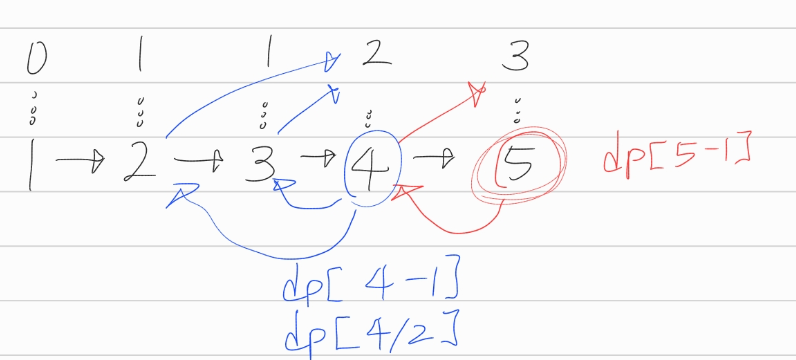 0 1 1 2 3
1 → 2 → 3 → 4 → 5 dp[5-1]
dp[4-1]
dp[4/2]